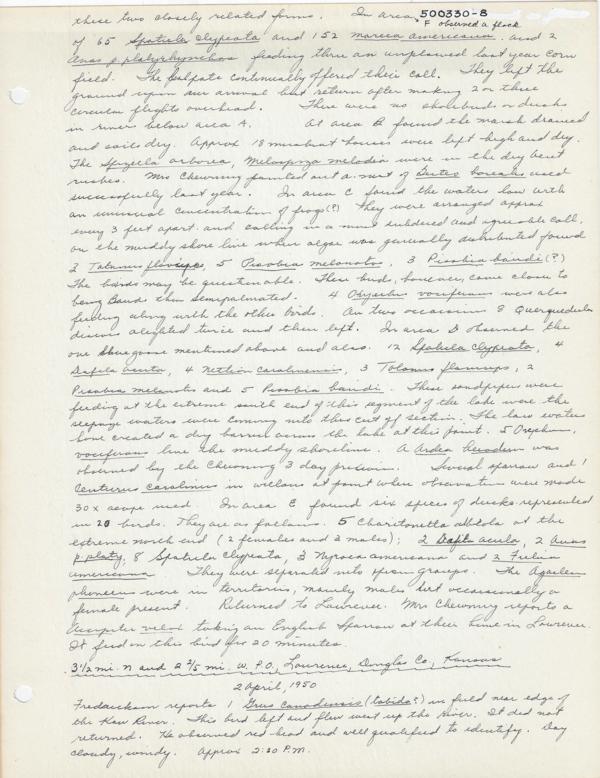 these two closely related forms. In area 500330-8
F observed a flock
of 65 Spatula clypeata and 152 mareca americana and 2
Anas p. platyrhynchos feeding thru an unplowed last year corn
field. The baldpate continually offered their call. They left the
ground upon our arrival but return after making 2 or three
circular flights overhead. There were no shorebirds or ducks
in river below area A. At area B found the marsh drained
and soil dry. Approx 13 muskrat houses were left high and dry.
The Spizella arborea, Melospiza melodia were in the dry bent
rushes. Mrs Chewning pointed out a nest of Buteo borealis used
successfully last year. In area C found the waters low with
an unusual concentration of frogs(?) They were arranged approx
every 3 feet apart and calling in a most subdered and agreeable call.
on the muddy shore line when algae was generally distributed found
2 Totanus flavipes, 5 Pisobia melanotos, 3 Pisobia bairdi (?)
The bairds may be questionable. These birds, however, came closer to
being Baird than Semipalmated. 4 Oxyechus vociferous were also
feeding along with the other birds. On two occasions 8 Querquedula
discors alighted twice and then left. In area D observed the
one blue goose mentioned above and also 12 Spatula clypeata, 4
Dafila acuta, 4 Nettion carolinensis, 3 Totanus flavipes, 2
Pisobia melanotos and 5 Pisobia bairdi. These sandpipers were
feeding at the extreme south end of this segment of the lake were the
seepage waters were coming into this cut off section. The low waters
have created a dry barrier across the lake at this point. 5 Oxyechus
vociferous line the muddy shoreline. A Ardea herodias was
observed by the Chewning 3 day previous. Several sparrow and 1
Centurus carolinus in willows at point when observation were made
30x scope used. In area E found six spices of ducks represented
in 20 birds. They are as follows. 5 Charitonetta albeola at the
extreme north end (2 females and 3 males); 2 Dafila acuta, 2 Anas
p. platy, 8 Spatula clypeata, 3 Nyroca americana and 2 Fulica
americana. They were separated into specie groups. The Agelaius
phoeniceus were in territories, mainly males but occasionally a
female present. Returned to Lawrence. Mrs Chewning reports a
Accipiter velox taking an English Sparrow at their home in Lawrence.
It feed on this bird for 20 minutes.
3 1/2 mi. n and 2 3/5 mi. W. P.O., Lawrence, Douglas Co., Kansas
2 April, 1950
Fredrickson reports 1 Grus canadensis (tabida?) in field near edge of
the Kaw River. This bird left and flew west up the River. It did not
returned. He observed red-head and well qualified to identify. Day
cloudy, windy. Approx 2:30 P.M.